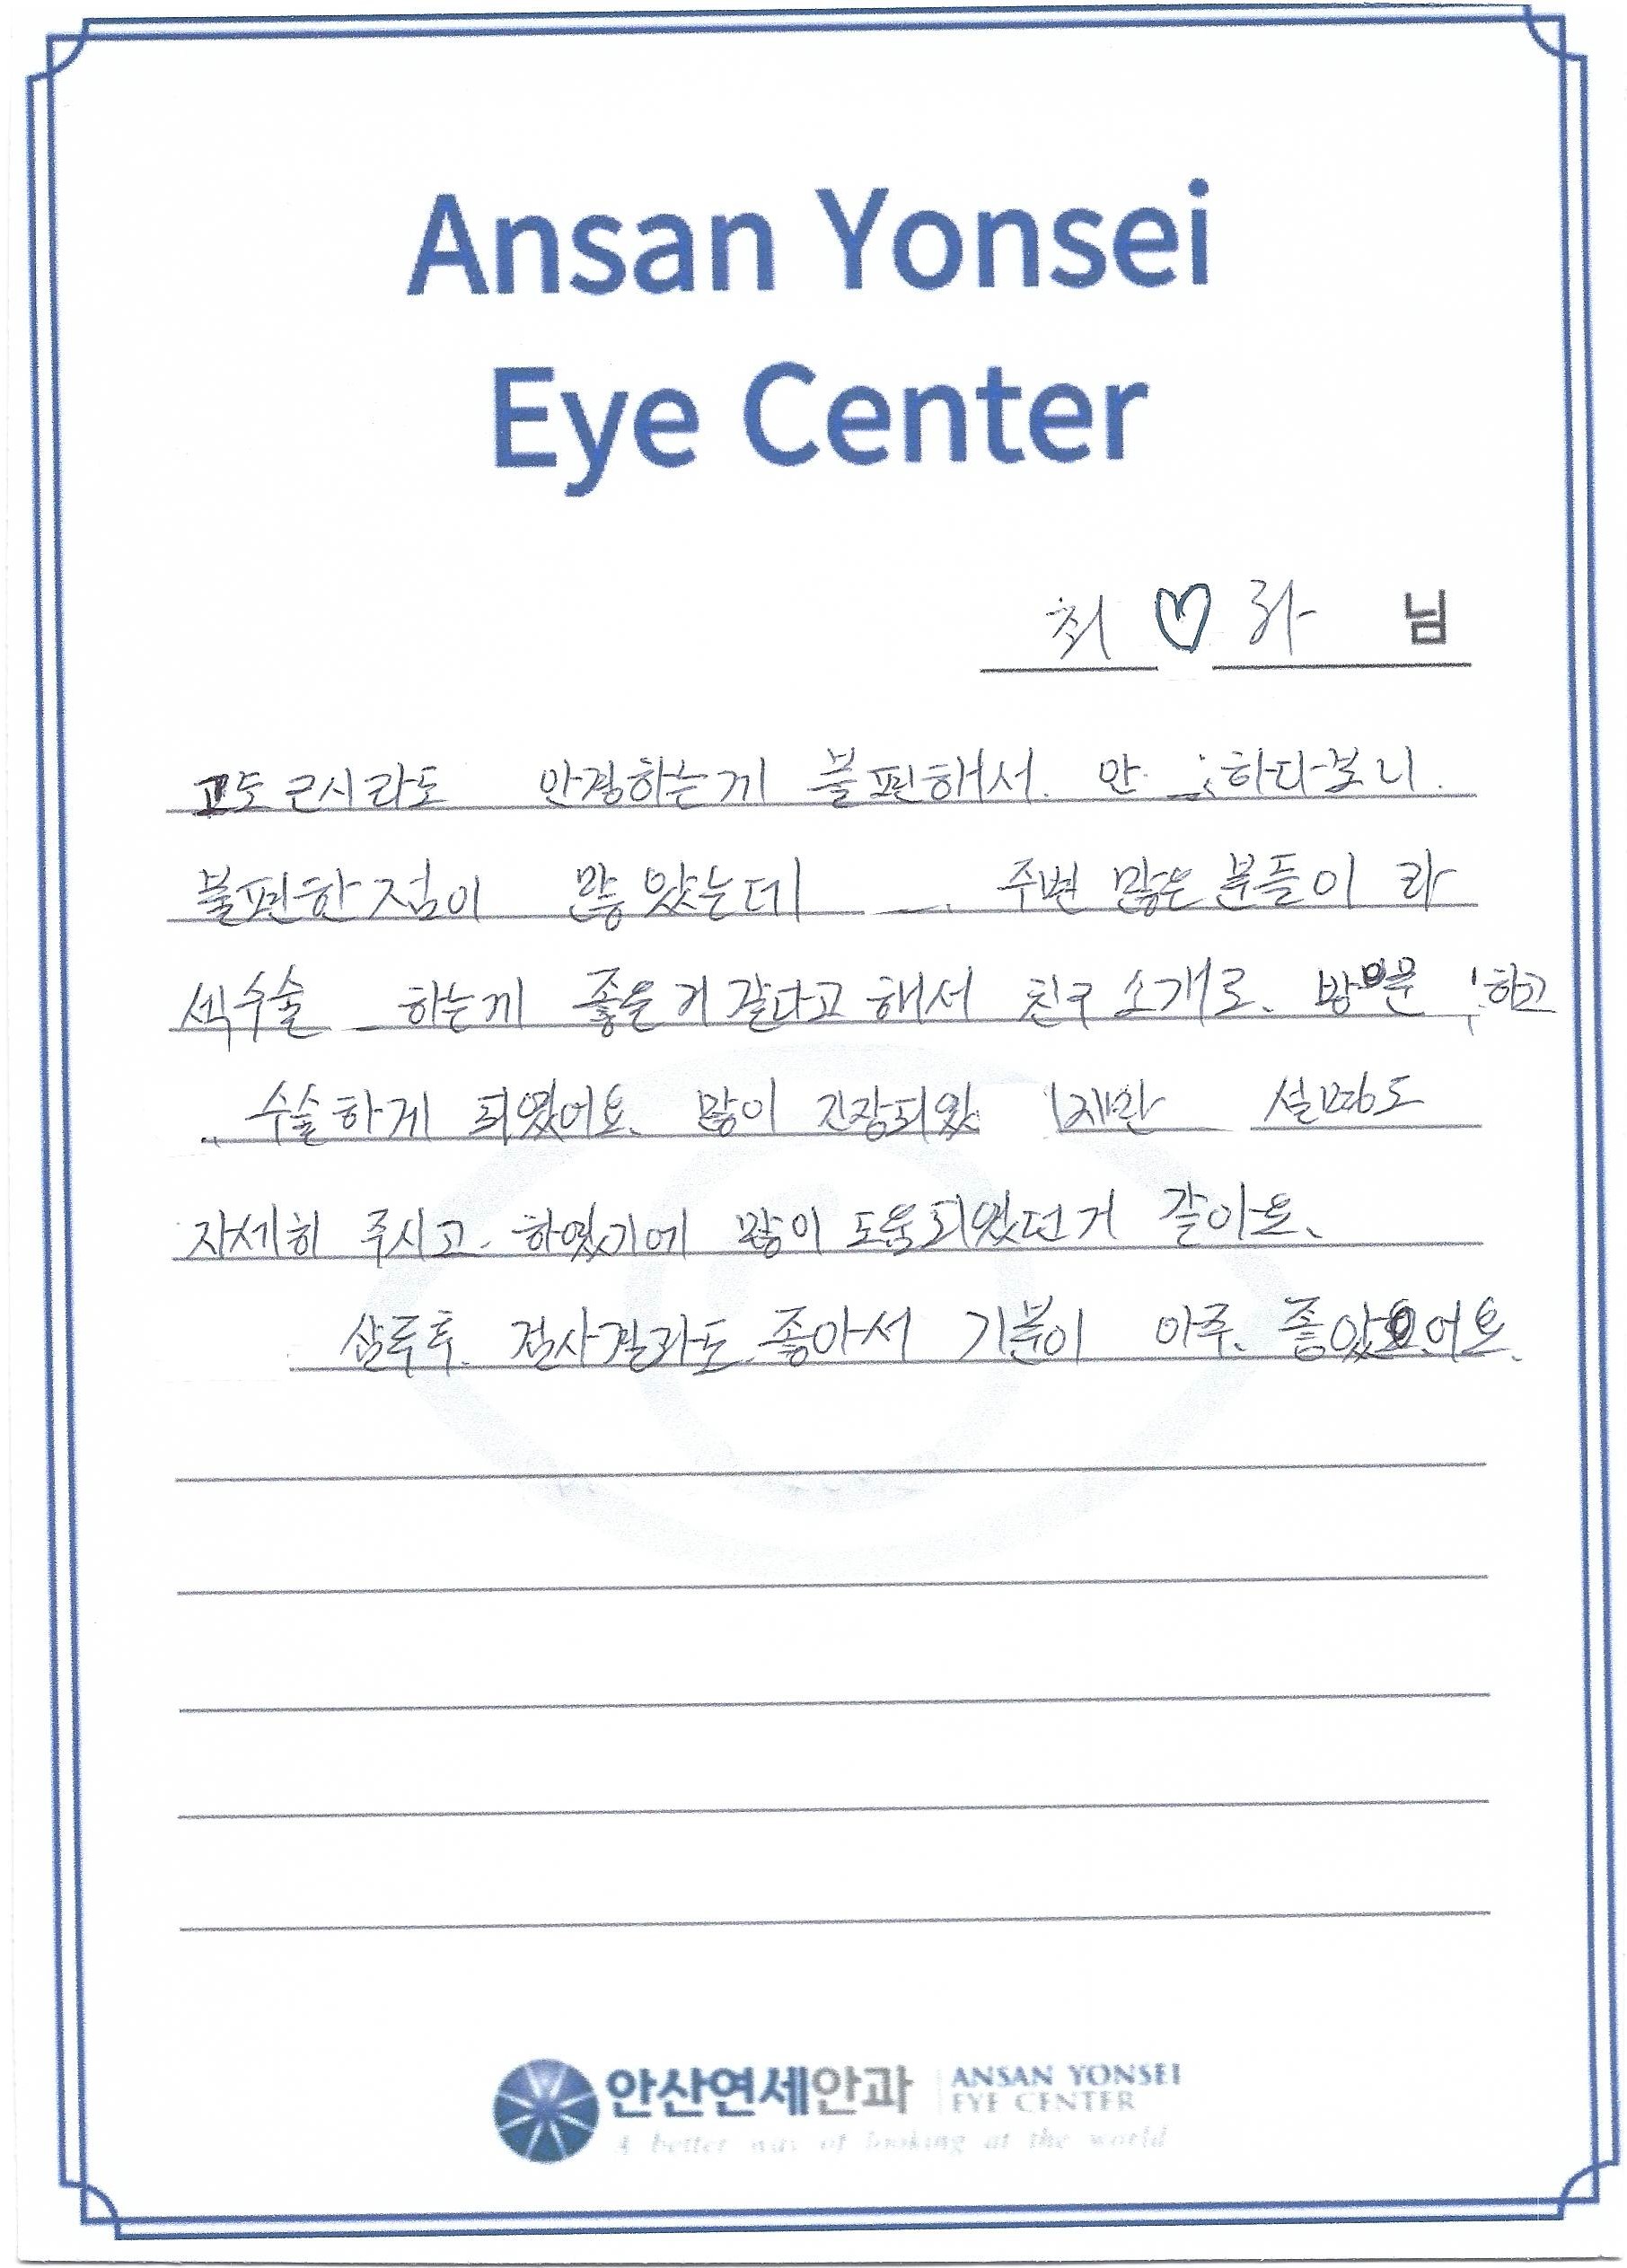 Ansan Yonsei
Eye Center
최 ♡ 라 님
고도근시라도 안경하는게 불편해서. 안 하다보니.
불편한점이 많았는데 주변 많은 분들이 라
섹수술 하는게 좋을거 같다고 해서 친구 소개로. 방문 하고
수술하게 되였어요. 많이 긴장되였 지만 설명도
자세히 주시고. 하였기에 많이 도움되였던거 같아요.
삼루후. 검사결과도 좋아서 기분이 아주. 좋았어요.
안산연세안과 ANSAN YONSEI
EYE CENTER
A better way of looking at the world